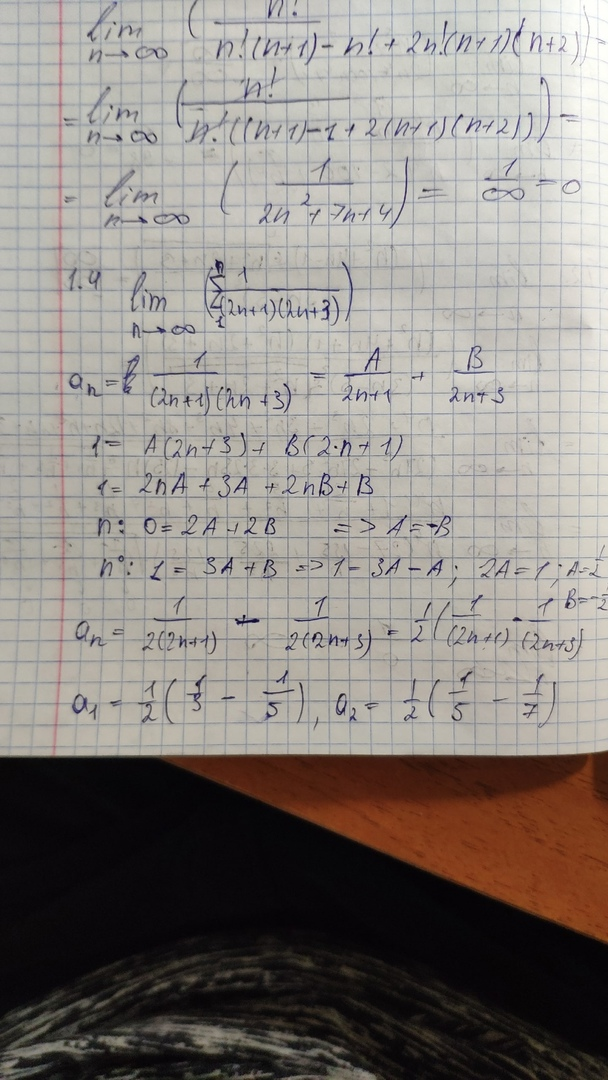 lim n→∞ ( n! / (n!(n+1) - n! + 2n!(n+1)(n+2)) ) =
= lim n→∞ ( n! / (n!((n+1)-1+2(n+1)(n+2))) ) =
= lim n→∞ ( 1 / (2n²+7n+4) ) = 1/∞ = 0
1.4 lim n→∞ ( Σ₁ⁿ 1 / ((2n+1)(2n+3)) )
aₙ = 1 / ((2n+1)(2n+3)) = A / (2n+1) + B / (2n+3)
1 = A(2n+3) + B(2·n+1)
1 = 2nA + 3A + 2nB + B
n: 0 = 2A + 2B => A = -B
n⁰: 1 = 3A + B => 1 = 3A - A; 2A = 1; A = 1/2
B = -1/2
aₙ = 1 / (2(2n+1)) - 1 / (2(2n+3)) = 1/2 ( 1 / (2n+1) - 1 / (2n+3) )
a₁ = 1/2 ( 1/3 - 1/5 ), a₂ = 1/2 ( 1/5 - 1/7 )